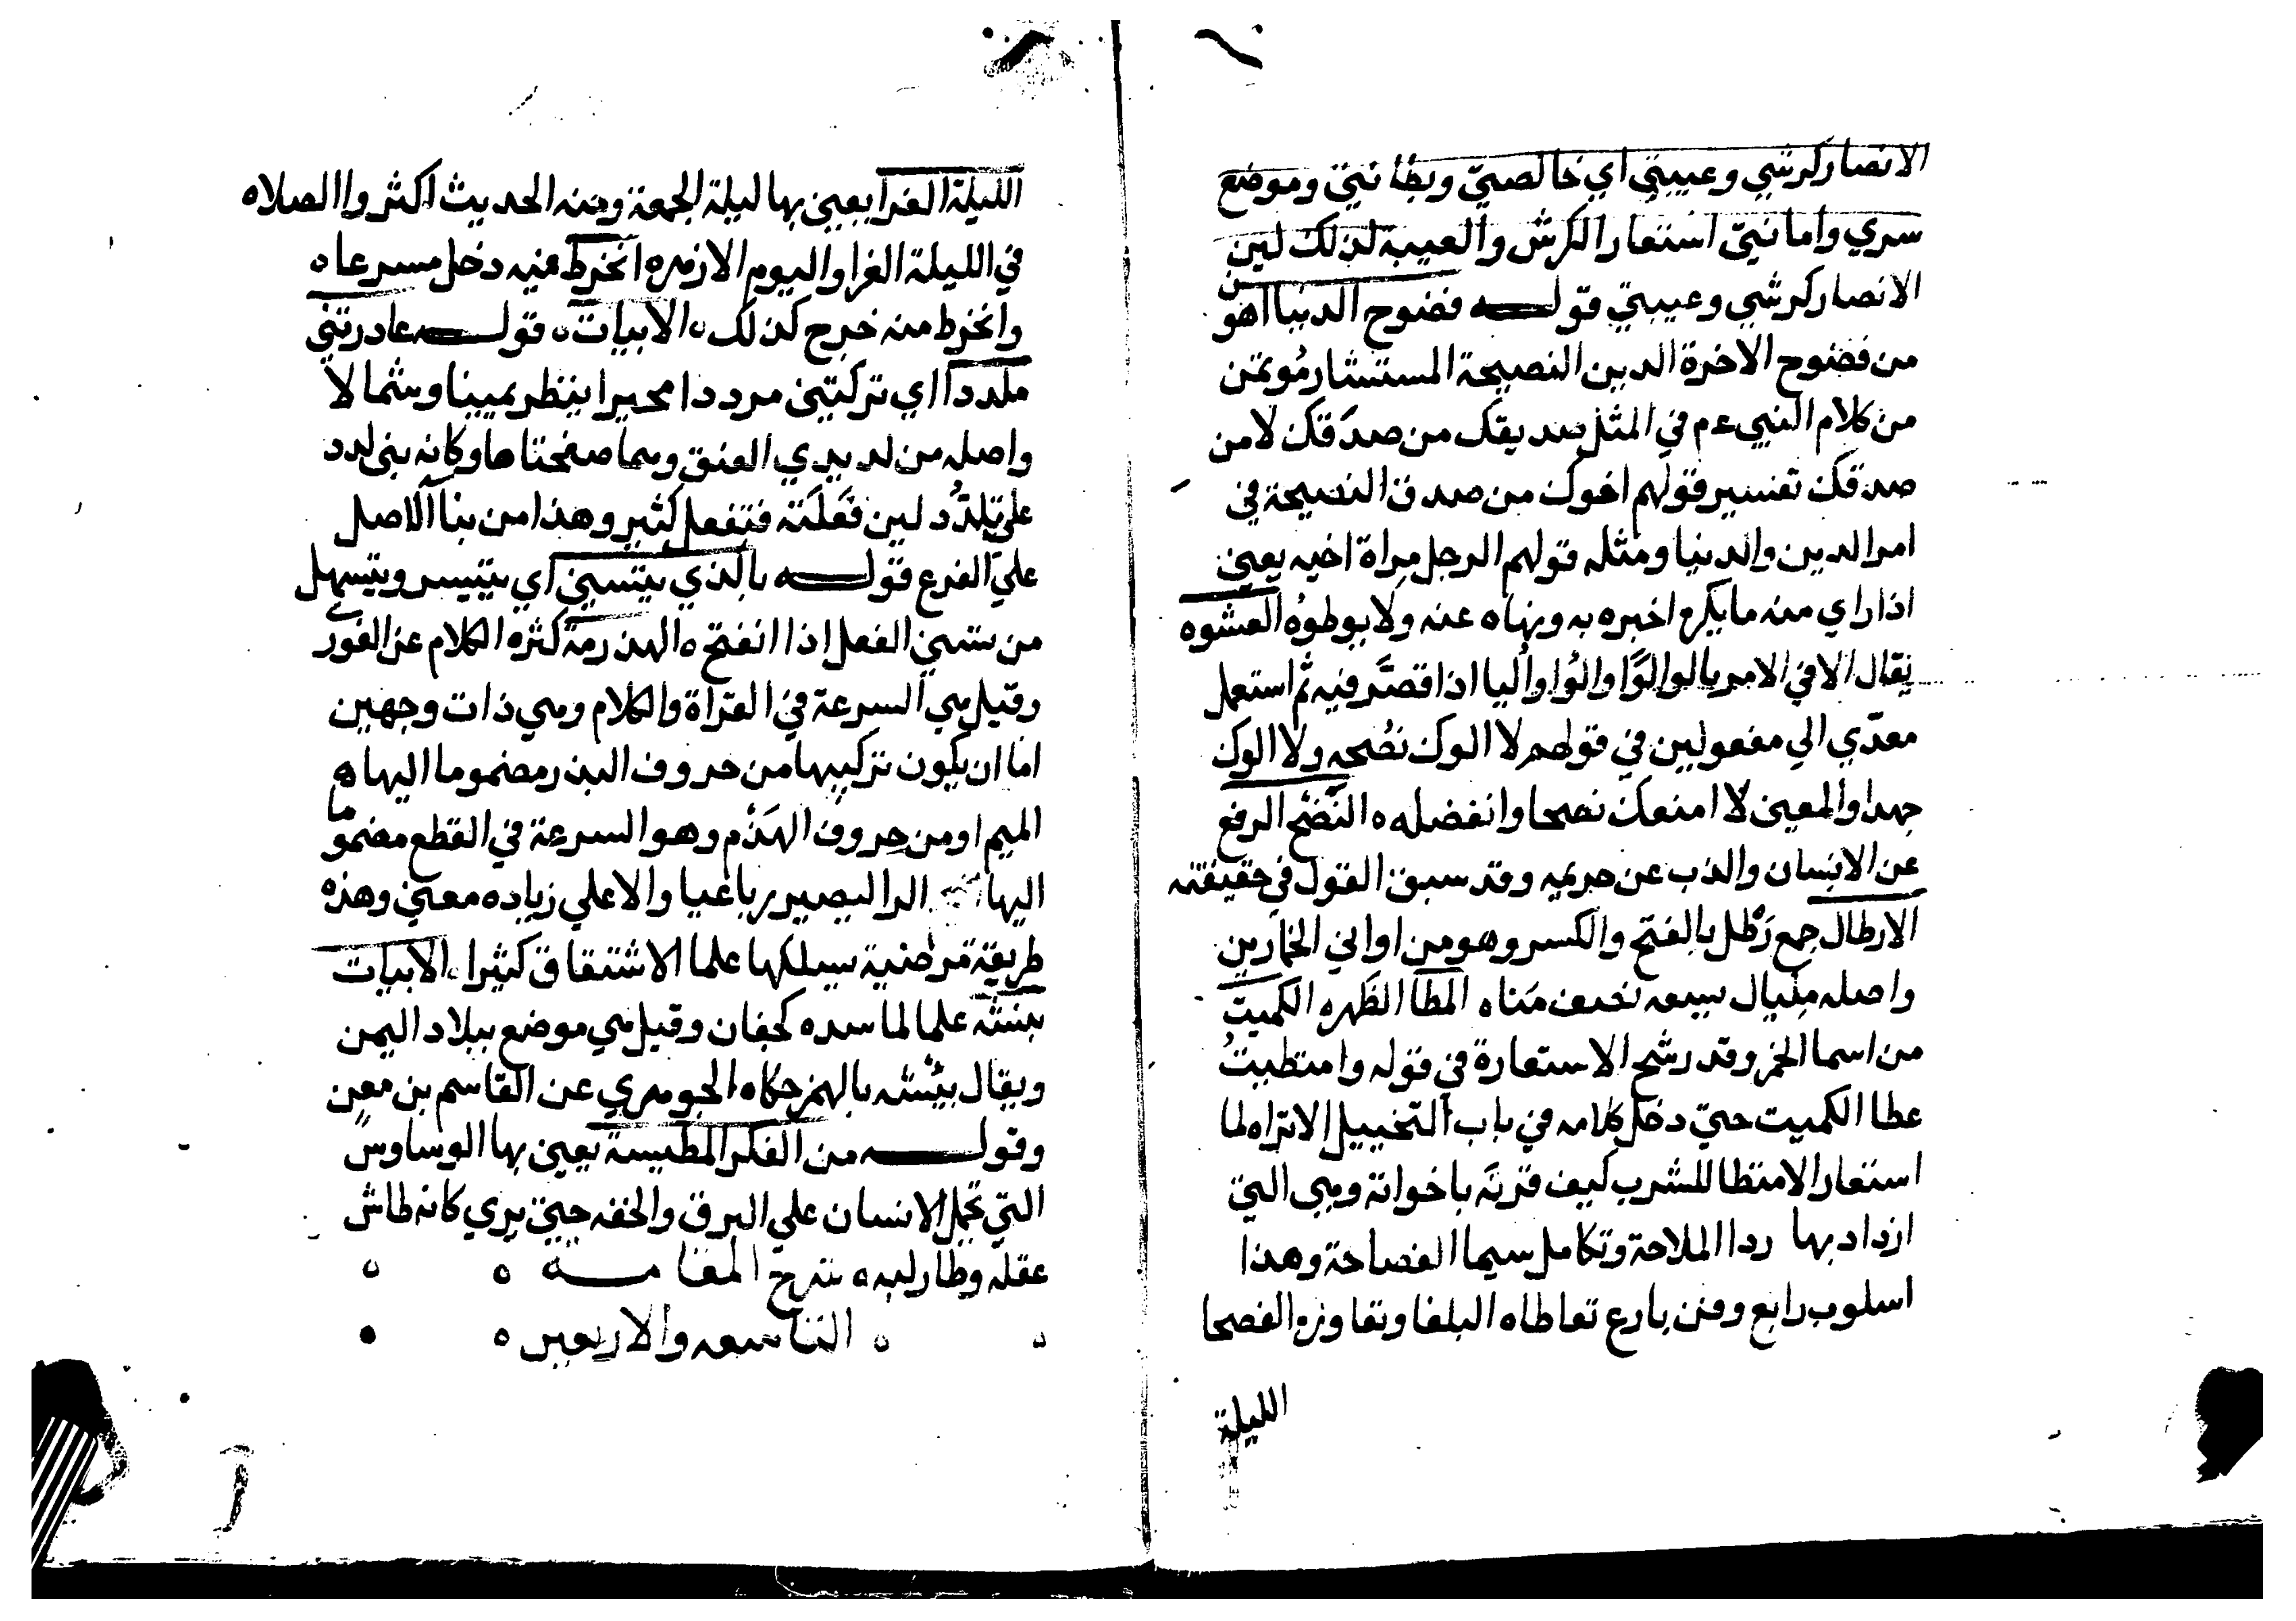 الانصار كرشي وعيبتي اي خالصتي وبطانتي وموضع
سري وامانتي استعار الكرش والعيبة لذلك لين
الانصار كرشي وعيبتي قوله فضوح الدنيا اهون
من فضوح الاخرة الدين النصيحة المستشار مُوتمن
من كلام النبي عم في المثل صديقك من صدَقك لا من
صدقك تفسير قولهم اخوك من صدق النصيحة في
امر الدين والدنيا ومثله قولهم الرجل مِراة اخيه يعني
اذا راي منه ما يكره اخبره به وينهاه عنه ولا يوطوُه العشوه
يقال الا في الامر يالو الوًا والُوا واُليا اذا قصَّر فيه ثم استعمل
معدّي الي مفعولين في قولهم لا الوك نُصحه ولا الوك
جهدا والمعني لا امنعك نصحا وانفضله ه النَضح الرفع
عن الانسان والذب عن حريمه وقد سبق القول في حقيقته
الارطال جمع رَطل بالفتح والكسر وهو من اواني الخمارين
واصله مكيال سبعه نصف مَناه المَطا الظَهره الكميت
من اسما الخمر وقد رشح الاستعارة في قوله وامتطيتُ
عطا الكميت حتي دخل كلامه في باب التخييل الا تراه لما
استعار الامتطا للشرب كيف قرنَه باخواته وهي التي
ازداد بها ردا الملاحة وتكامل سيما الفصاحة وهذا
اسلوب رايع وفن بارع تعاطاه البلغا وتعاوره الفصحا
الليلة
الليلة الغرا يعني بها ليلة الجمعة ومنه الحديث اكثروا الصلاه
في الليلة الغرا واليوم الازهره انخرط فيه دخل مسرعا ه
وانخرط منه خرج كذلك ه الابيات ه قوله غادرتني
ملددا اي تركتني مرددا محيرا ينظر يمينا وشمالا
واصله من لديدي العنق وهما صفحتاها وكانه بني لدد
علي تلدُّد لين فَعَلَته فتفعل كثير وهذا من بنا الاصل
علي الفرع قوله بالذي يتسني اي يتيسر ويتسهل
من سني الفعل اذا انفتح ه الهذرمة كثره الكلام عن الفور
وقيل هي السرعة في القراة والكلام وهي ذات وجهين
اما ان يكون تركيبها من حروف الهذر مضموما اليها ه
الميم او من حروف الهَذْم وهو السرعة في القطع مضموما
اليها الرا ليصير رباعيا والا علي زياده معني وهذه
طريقة مرضية سيلكها علما الاشتقاق كثيرا ه الابيات
بنشه علما لما سده كجفان وقيل هي موضع ببلاد اليمن
ويقال بيُشه بالهمز حكاه الجوهري عن القاسم بن معن
وقوله من الفكر المطيسة يعني بها الوساوس
التي تحمل الانسان علي البرق والخفه حتي يري كانه طاش
عقله وطار لبه ه شرح المقامه ه
التاسعه والاربعين ه